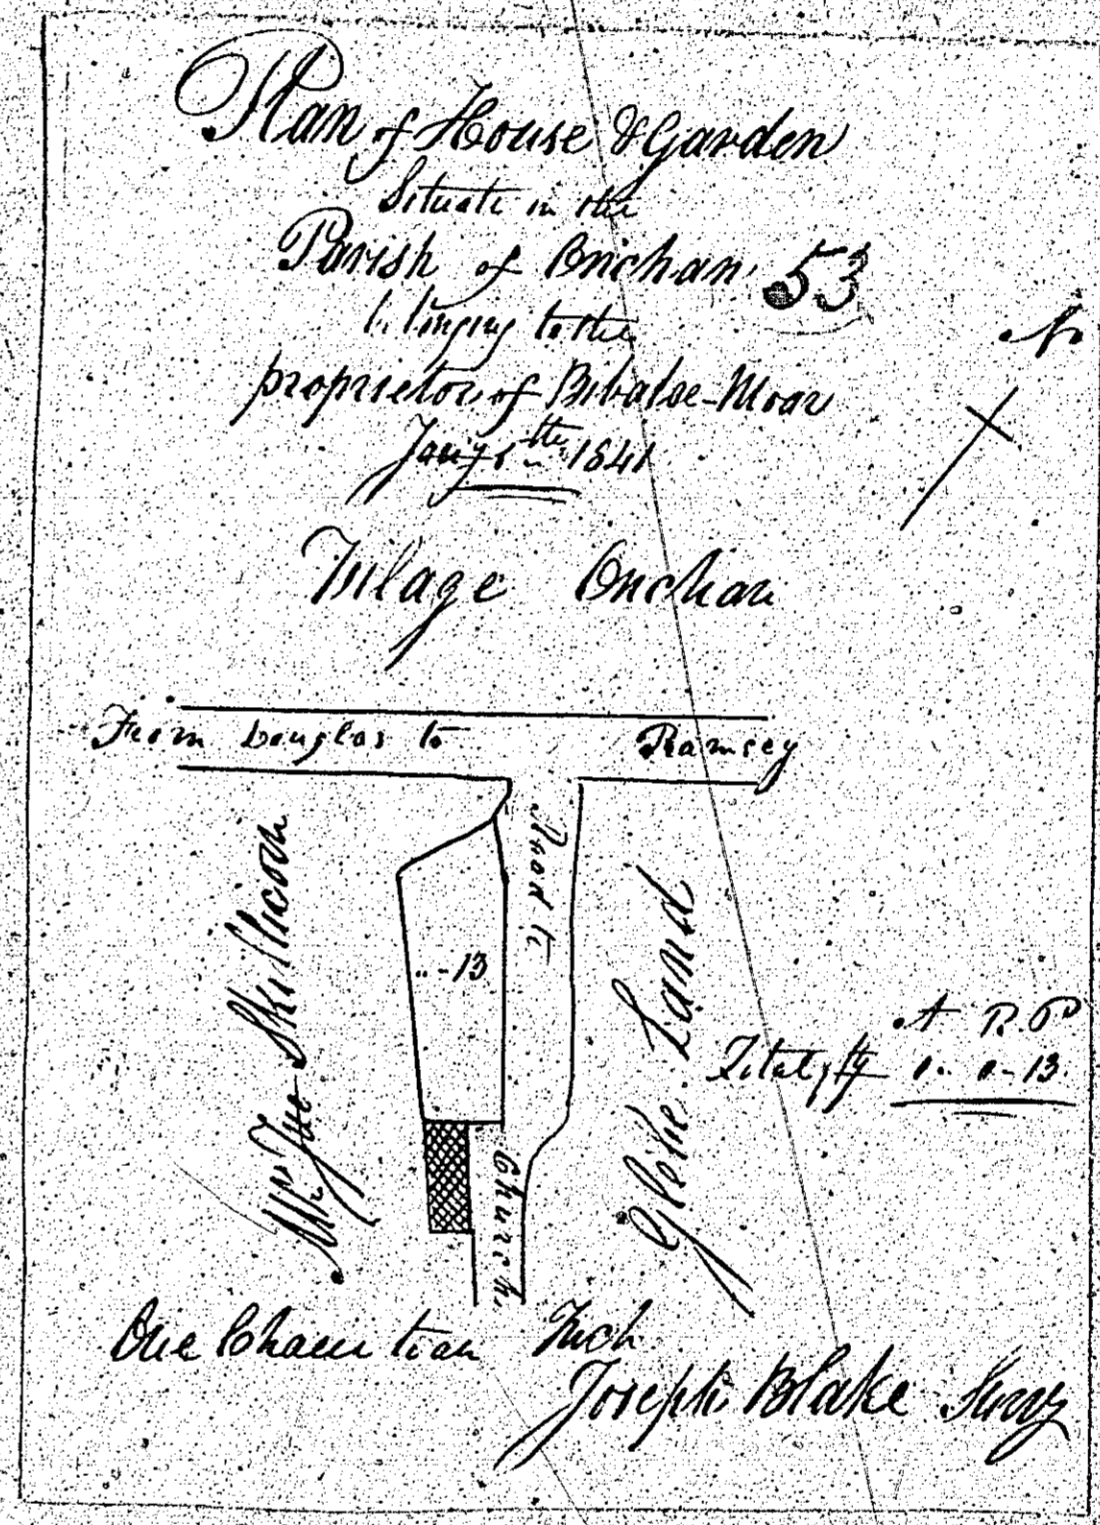 Plan of House & Garden
Situate in the
Parish of Onchan 53
belonging to the
proprietor of Bibaloe-Moar
Jany 1841
N
Vilage Onchan
From Douglas to Ramsey
Road to
Church
.. - 13
Mr Jno Skillicorn
Glebe Land
A R P
Total 0. 0 - 13.
One Chain to an Inch
Joseph Blake Survy